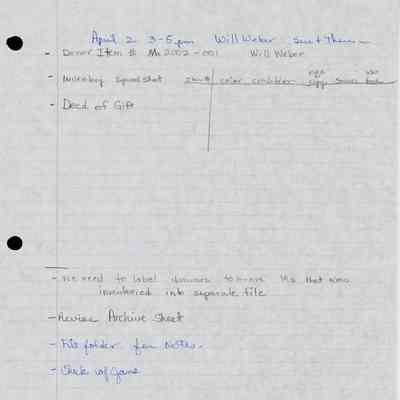 April 2 3-5pm Will Weber Sue + Thom
- Donor Item # Ms2002-001 Will Weber
- Inventory Spreadsheet Item # color condition
- Deed of Gift
- We need to label Ms that were
inventoried into separate file
- Revise Archive Sheet
- File folder for Notes.
- Check w/ Jane